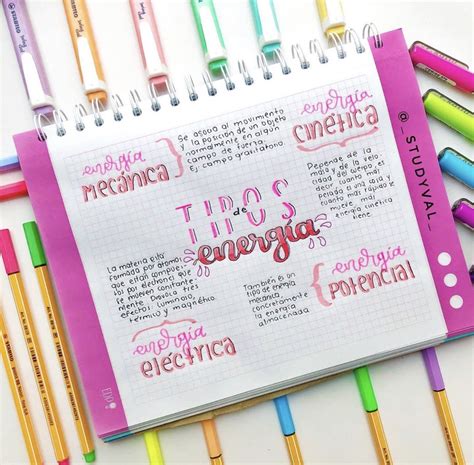 energía
MECÁNICA
Se asocia al movimiento
y la posición de un objeto
normalmente en algún
campo de fuerza.
Ej: campo gravitatorio
energía
CINÉTICA
Depende de la
masa y de la velo-
cidad del cuerpo, es
decir cuanto más
pesada sea una cosa y
cuanto más rápido se
mueve, más
energía cinética
tiene.
TIPOS
de
energía
La materia está
formada por átomos
que están compues-
tos por electrones que
se mueven constante-
mente. Provoca tres
efectos: luminoso,
térmico y magnético.
También es un
tipo de energía
mecánica,
concretamente
la energía
almacenada.
energía
POTENCIAL
energía
ELÉCTRICA
@_STUDYVAL_